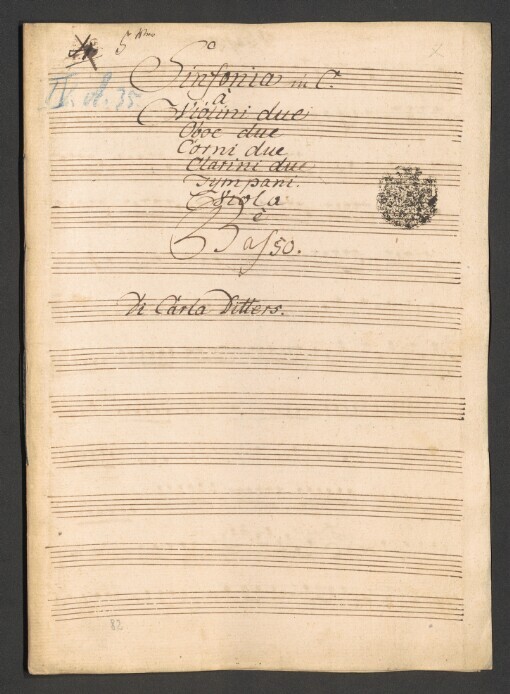 5
Sinfonia in C.
à
Violini due
Oboe due
Corni due
Clarini due
Tympani.
Viola
è
Basso.
IV. A. 35.
Di Carlo Ditters.
82